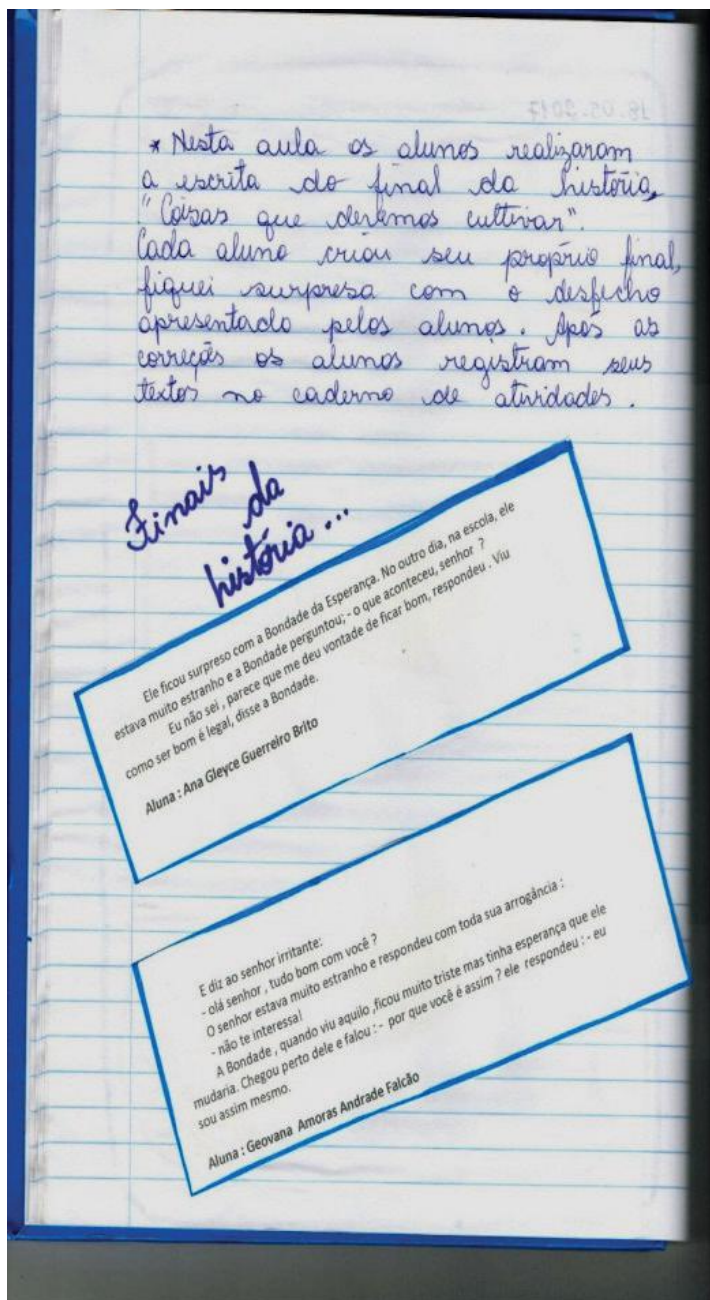 18.05.2017
* Nesta aula os alunos realizaram
a escrita do final da história,
"Coisas que devemos cultivar".
Cada aluno criou seu próprio final,
fiquei surpresa com o desfecho
apresentado pelos alunos. Após as
correçãs os alunos registram seus
textos no caderno de atividades.
Finais
da
história...
Ele ficou surpreso com a Bondade da Esperança. No outro dia, na escola, ele
estava muito estranho e a Bondade perguntou; - o que aconteceu, senhor ?
Eu não sei , parece que me deu vontade de ficar bom, respondeu . Viu
como ser bom é legal, disse a Bondade.
Aluna : Ana Gleyce Guerreiro Brito
E diz ao senhor irritante:
- olá senhor , tudo bom com você ?
O senhor estava muito estranho e respondeu com toda sua arrogância :
- não te interessa!
A Bondade , quando viu aquilo ,ficou muito triste mas tinha esperança que ele
mudaria. Chegou perto dele e falou : - por que você é assim ? ele respondeu : - eu
sou assim mesmo.
Aluna : Geovana Amoras Andrade Falcão